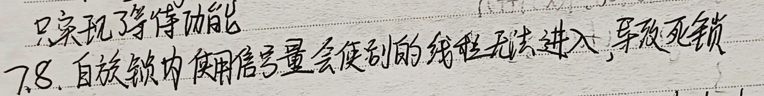 只实现了等待功能
7.8. 自旋锁内使用信号量会使别的线程无法进入,导致死锁